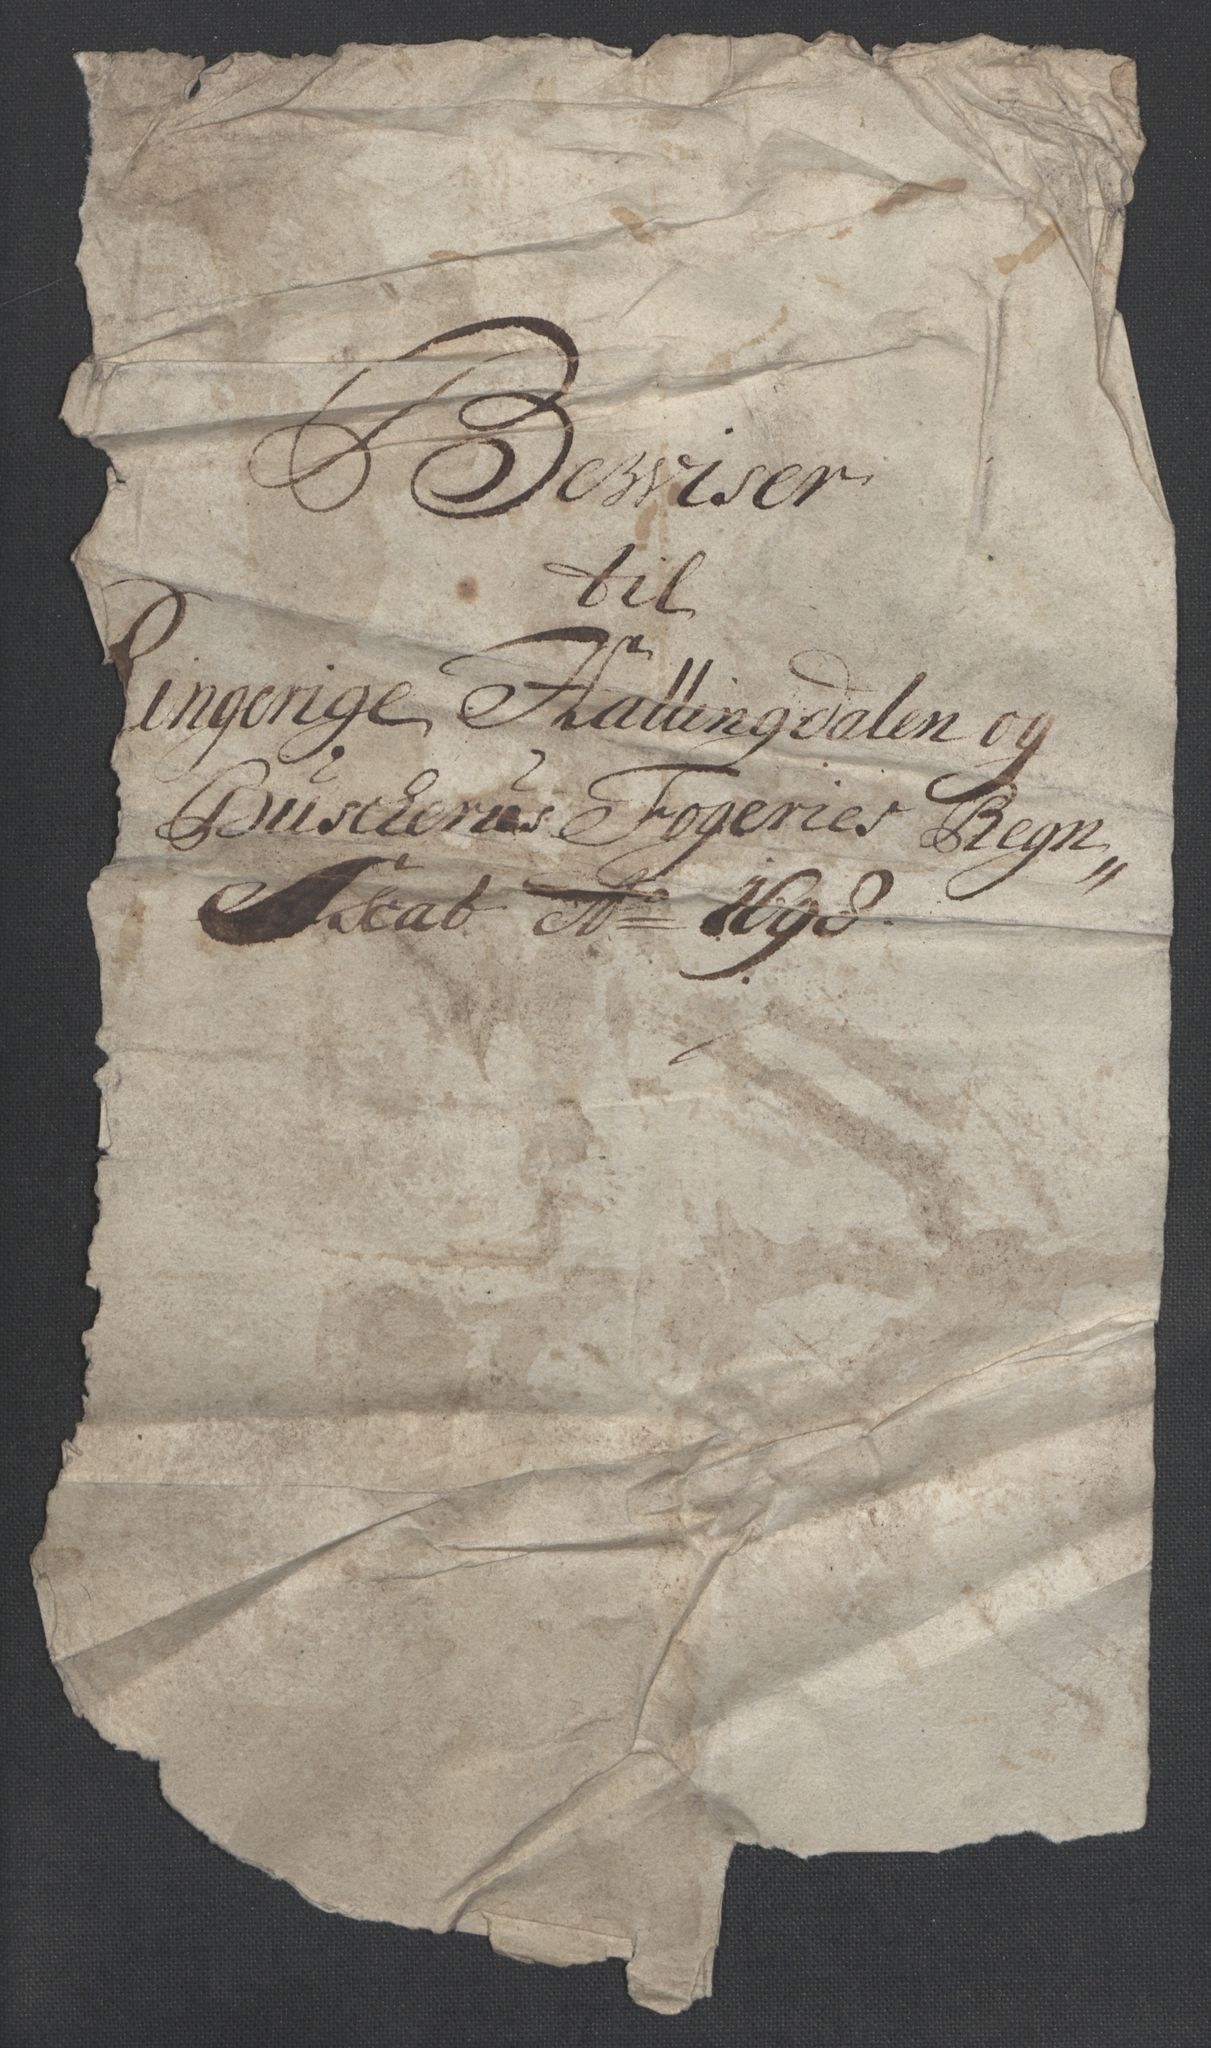 Bewiser
til
Ringerige Hallingdalen og
Buscheruds Fogeries Regn„
Skab Ao 1698.